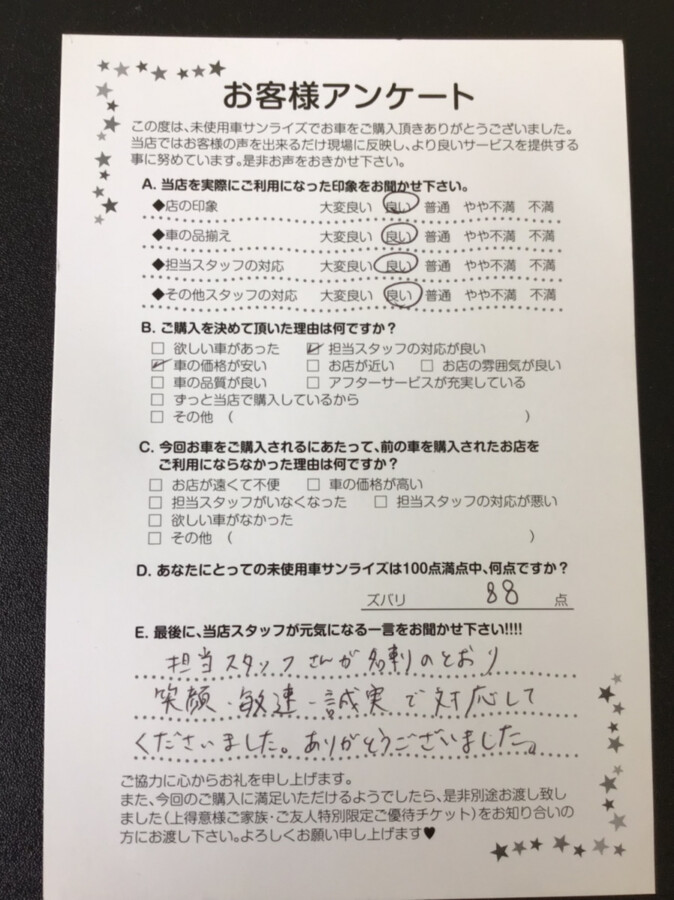 お客様アンケート
この度は、未使用車サンライズでお車をご購入頂きありがとうございました。
当店ではお客様の声を出来るだけ現場に反映し、より良いサービスを提供する
事に努めています。是非お声をおきかせ下さい。
A. 当店を実際にご利用になった印象をお聞かせ下さい。
◆店の印象 大変良い 良い 普通 やや不満 不満
◆車の品揃え 大変良い 良い 普通 やや不満 不満
◆担当スタッフの対応 大変良い 良い 普通 やや不満 不満
◆その他スタッフの対応 大変良い 良い 普通 やや不満 不満
B. ご購入を決めて頂いた理由は何ですか？
□ 欲しい車があった ☑ 担当スタッフの対応が良い
☑ 車の価格が安い □ お店が近い □ お店の雰囲気が良い
□ 車の品質が良い □ アフターサービスが充実している
□ ずっと当店で購入しているから
□ その他 （ ）
C. 今回お車をご購入されるにあたって、前の車を購入されたお店を
ご利用にならなかった理由は何ですか？
□ お店が遠くて不便 □ 車の価格が高い
□ 担当スタッフがいなくなった □ 担当スタッフの対応が悪い
□ 欲しい車がなかった
□ その他 （ ）
D. あなたにとっての未使用車サンライズは100点満点中、何点ですか？
ズバリ 88 点
E. 最後に、当店スタッフが元気になる一言をお聞かせ下さい!!!!
担当スタッフさんが名刺のとおり
笑顔・敏速・誠実で対応して
くださいました。ありがとうございました。
ご協力に心からお礼を申し上げます。
また、今回のご購入に満足いただけるようでしたら、是非別途お渡し致し
ました(上得意様ご家族・ご友人特別限定ご優待チケット)をお知り合いの
方にお渡し下さい。よろしくお願い申し上げます♥